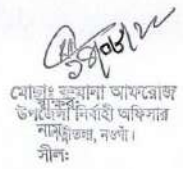 মোছাঃ রুমানা আফরোজ
স্বাক্ষর:
উপজেলা নির্বাহী অফিসার
নাম:
নওগাঁ।
সীল: